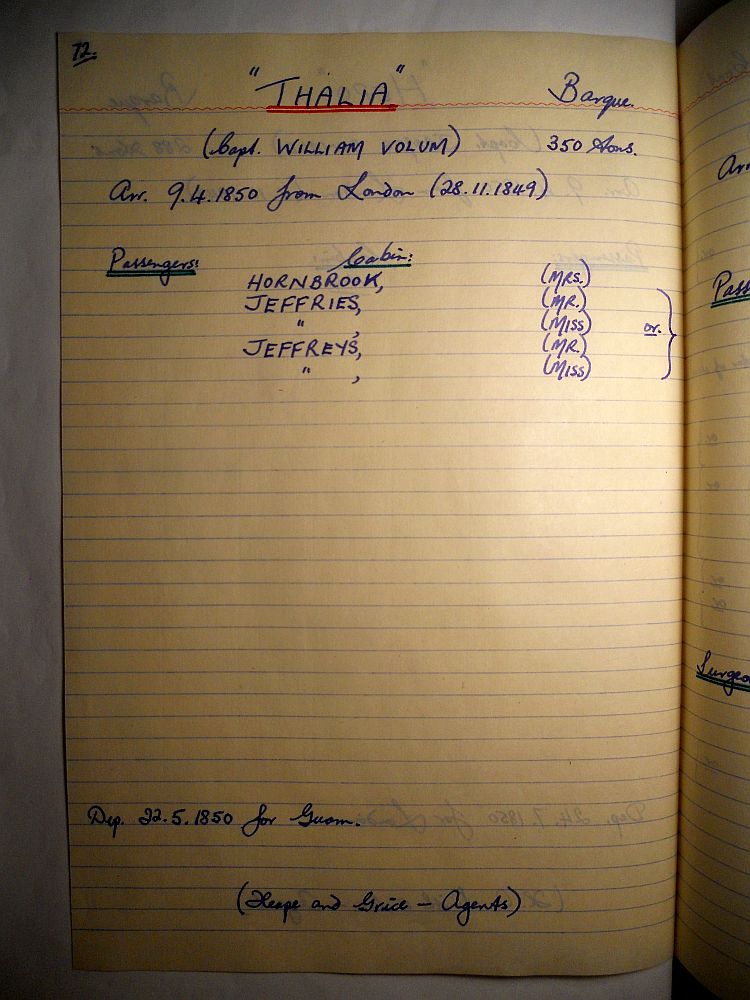 72.
"THALIA" Barque.
(Capt. WILLIAM VOLUM) 350 tons.
Arr. 9.4.1850 from London (28.11.1849)
Passengers: Cabin:
HORNBROOK, (MRS.)
JEFFRIES, (MR.)
" , (MISS) or.
JEFFREYS, (MR.)
" , (MISS)
Dep. 22.5.1850 for Guam.
(Heape and Grice - Agents)
Arr
Pass
Surgeo